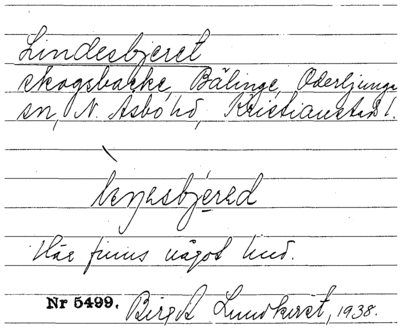 Lindesbjeret
skogsbacke, Bälinge, Oderljunga
sn, N. Åsbo hd, Kristianstad l.
leŋesbjéred
Här finns något hed.
Nr 5499. Birgit Lundkvist, 1938.